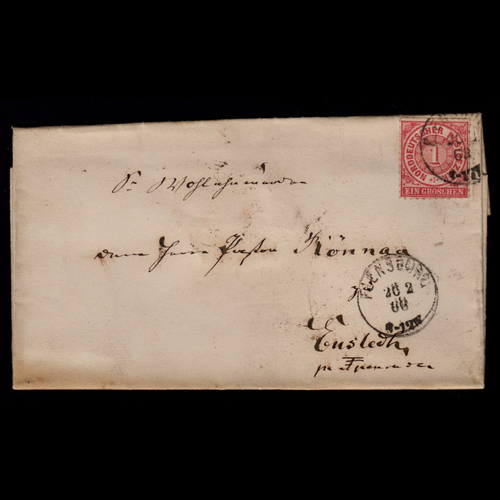 NORDDEUTSCHER POSTBEZIRK
1
EIN GROSCHEN
Sr Wohlehrwürden
dem Herrn Pastor Rönnau
FLENSBURG
26 2
68
9-12V
Enstedt
pr